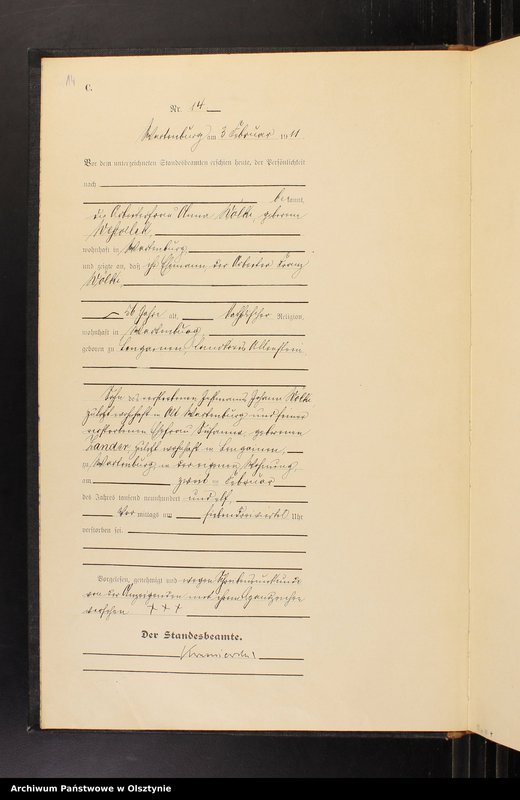 14
C.
Nr. 14
Wartenburg am 3. Februar 1911.
Vor dem unterzeichneten Standesbeamten erschien heute, der Persönlichkeit
nach
bekannt,
die Arbeiterfrau Anna Wolke, geborene
wohnhaft in Wartenburg,
und zeigte an, daß ihr Ehemann, der Arbeiter Franz
Wolke
Jahre alt, katholischer Religion,
wohnhaft in Wartenburg
geboren zu Lengainen, Landkreis Allenstein
Sohn des verstorbenen Johann Wolke
zuletzt wohnhaft in Alt Wartenburg und seiner
verstorbenen Ehefrau Susanna, geborenen
Zander, zuletzt wohnhaft in Lengainen,
zu Wartenburg in der eigenen Wohnung
am zweiten Februar
des Jahres tausend neunhundert und elf,
Vor mittags um siebendreiviertel Uhr
verstorben sei.
Vorgelesen, genehmigt und wegen Schreibensunkunde
von der Anzeigenden mit ihrem Handzeichen
versehen + + +
Der Standesbeamte.
Archiwum Państwowe w Olsztynie